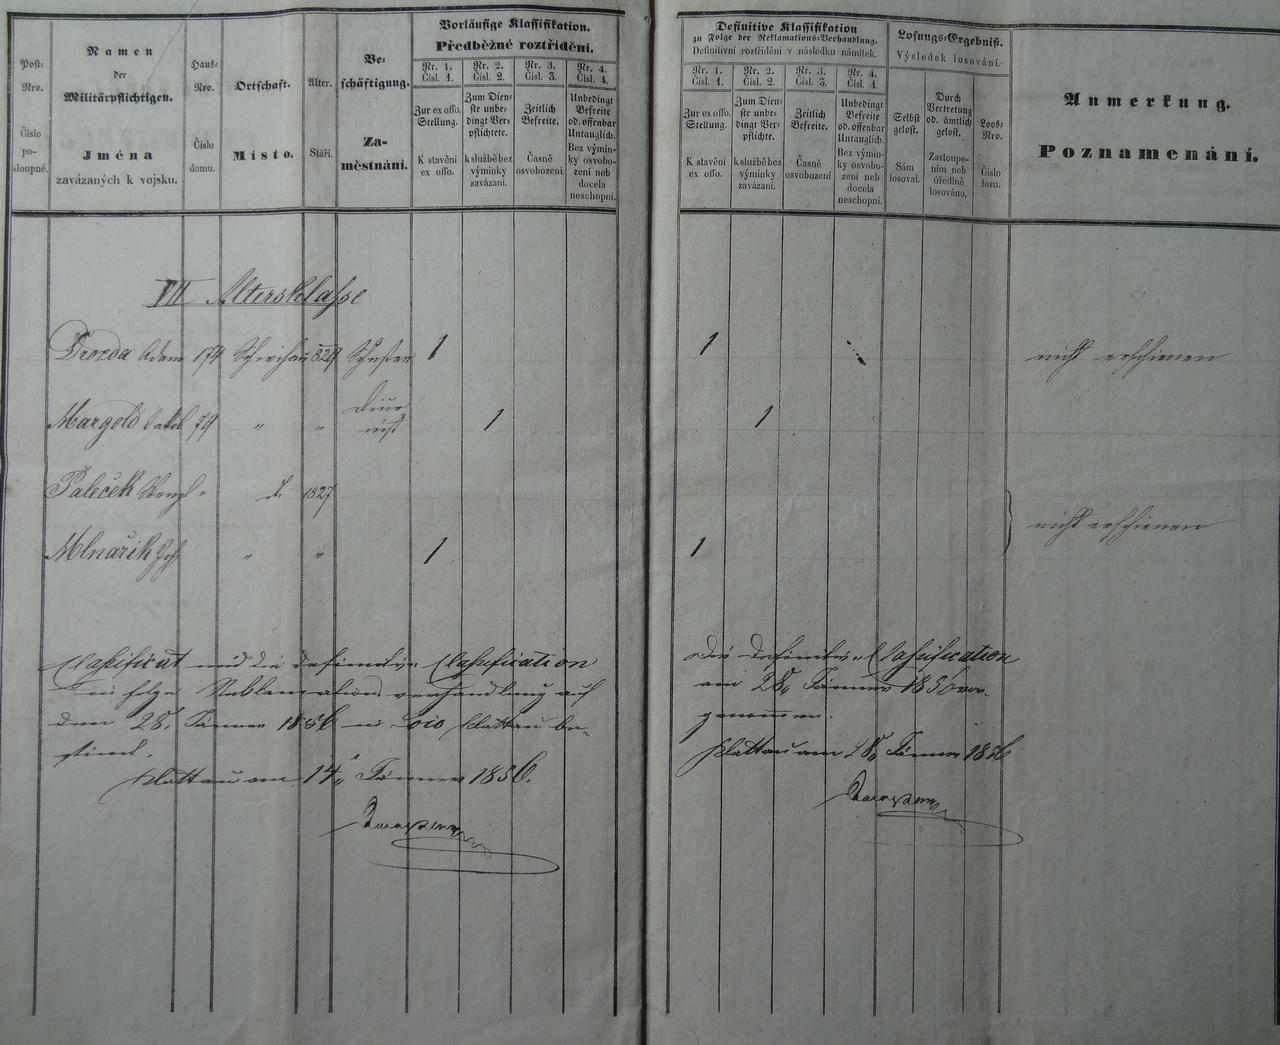 Post-Nro.
Číslo postloupné.
Namen
der
Militärpflichtigen.
Jména
zavázaných k vojsku.
Haus-Nro.
Číslo domu.
Ortschaft.
Místo.
Alter.
Stáří.
Beschäftigung.
Zaměstnání.
Vorläufige Klassifikation.
Předběžné roztřídění.
Nr. 1.
Čísl. 1.
Zur ex offo.
Stellung.
K stavění
ex offo.
Nr. 2.
Čísl. 2.
Zum Dien-
ste unbe-
dingt Ver-
pflichtete.
k službě bez
výminky
zavázaní.
Nr. 3.
Čísl. 3.
Zeitlich
Befreite.
Časně
osvobození.
Nr. 4.
Čísl. 4.
Unbedingt
Befreite
od. offenbar
Untauglich.
Bez výmin-
ky osvobo-
zení neb
docela
neschopní.
Definitive Klassifikation
zu Folge der Reklamations-Verhandlung.
Definitivní roztřídění v následku námitek.
Nr. 1.
Čísl. 1.
Zur ex offo.
Stellung.
K stavění
ex offo.
Nr. 2.
Čísl. 2.
Zum Dien-
ste unbe-
dingt Ver-
pflichte.
k službě bez
výminky
zavázaní.
Nr. 3.
Čísl. 3.
Zeitlich
Befreite.
Časně
osvobození
Nr. 4.
Čísl. 4.
Unbedingt
Befreite
od. offenbar
Untauglich.
Bez výmin-
ky osvobo-
zení neb
docela
neschopní.
Losungs-Ergebniß.
Výsledek losování.
Selbst
gelost.
Sám
losoval.
Durch
Vertretung
od. ämtlich
gelost.
Zastoupe-
ním neb
úředlně
losováno.
Loos-
Nro.
Číslo
losu.
Anmerkung.
Poznamenání.
VII Altersklasse
Drozda Adam 174 Schwihau 1829 Schuster 1 1 nicht erschienen
Margold Jakob 79 " " Diurnist 1 1
Paleček Wenzl " do 1827
nicht erschienen
Mlnařik Joh " " 1 1
Classificirt und die definitive Classification
in folge Reklamations verhandlung auf
den 28. Jänner 1856 in Loco Klattau be-
stimt.
Klattau am 14. Jänner 1856.
Die Definitive Classification
am 28. Jänner 1856 vor-
genommen.
Klattau am 28. Jänner 1856